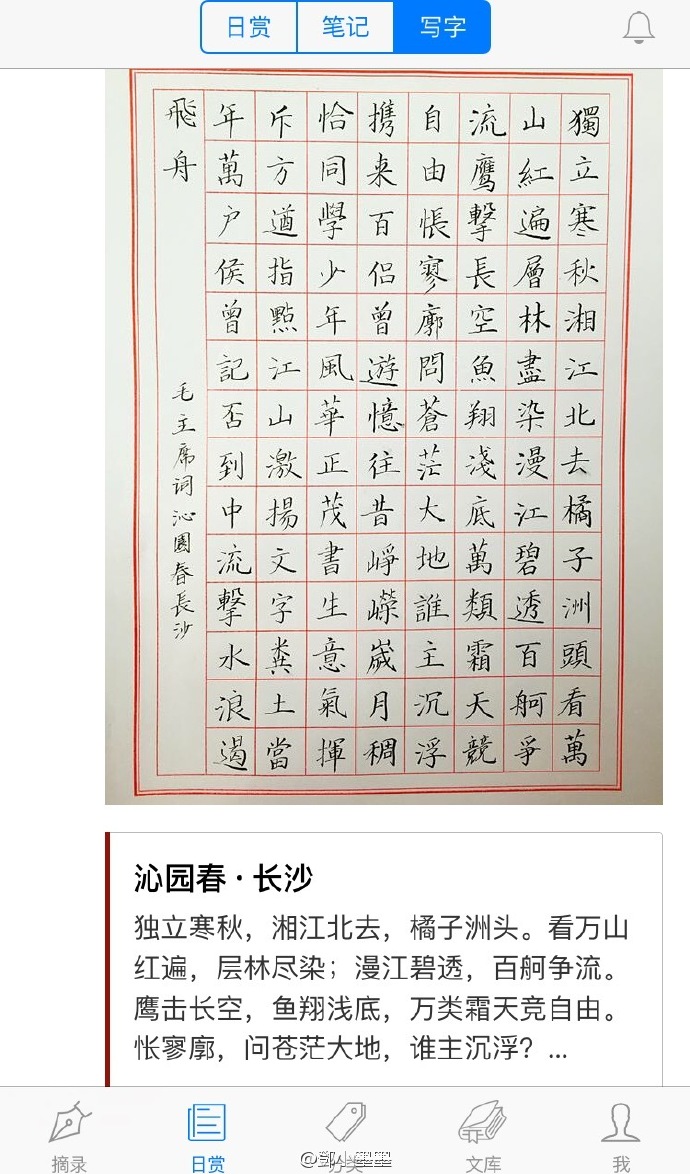 日赏
笔记
写字
獨立寒秋湘江北去橘子洲頭看萬
山紅遍層林盡染漫江碧透百舸爭
流鷹擊長空魚翔淺底萬類霜天競
自由悵寥廓問蒼茫大地誰主沉浮
携来百侣曾遊憶往昔崢嶸歲月稠
恰同學少年風華正茂書生意氣揮
斥方遒指點江山激揚文字糞土當
年萬户侯曾記否到中流擊水浪遏
飛舟
毛主席词沁園春長沙
沁园春·长沙
独立寒秋，湘江北去，橘子洲头。看万山
红遍，层林尽染；漫江碧透，百舸争流。
鹰击长空，鱼翔浅底，万类霜天竞自由。
怅寥廓，问苍茫大地，谁主沉浮？...
摘录
日赏
文库
我